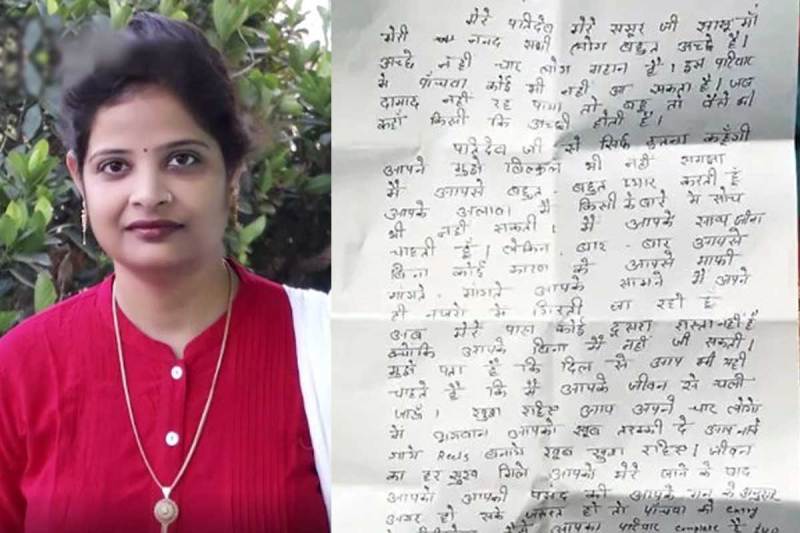 मेरे पतिदेव मेरे ससुर जी सासू माँ
मेरी ननद सभी लोग बहुत अच्छे हैं।
अच्छे नहीं चार लोग महान हैं। इस परिवार
में पाँचवा कोई भी नहीं आ सकता है। जब
दामाद नहीं रह पाया तो बहू तो वैसे भी
कहाँ किसी कि अच्छी होती है।
पतिदेव जी से सिर्फ इतना कहूँगी
आपने मुझे बिल्कुल भी नहीं समझा
मैं आपसे बहुत - बहुत प्यार करती हूँ
आपके अलावा मैं किसी के बारे में सोच
भी नहीं सकती। मैं आपके साथ जीना
चाहती हूँ। लेकिन बार - बार आपसे
बिना कोई कारण के आपसे माफी
मांगते - मांगते आपके सामने मैं अपने
ही नजरों में गिरती जा रही हूँ
अब मेरे पास कोई दूसरा रास्ता नहीं है
क्योंकि आपके बिना मैं नहीं जी सकती।
मुझे पता है कि दिल से आप भी यही
चाहते हैं कि मैं आपके जीवन से चली
जाऊँ। खुश रहिए आप अपने चार लोगों
में भगवान आपको खूब तरक्की दे आप नाचे
गाये Reels बनाये खूब खुश रहिए। जीवन
का हर सुख मिले आपको मेरे जाने के बाद
आपको आपकी पसंद की आपके मन के अनुसार
अगर हो सके जरूरत हो तो पाँचवा की entry
आपका परिवार complete है